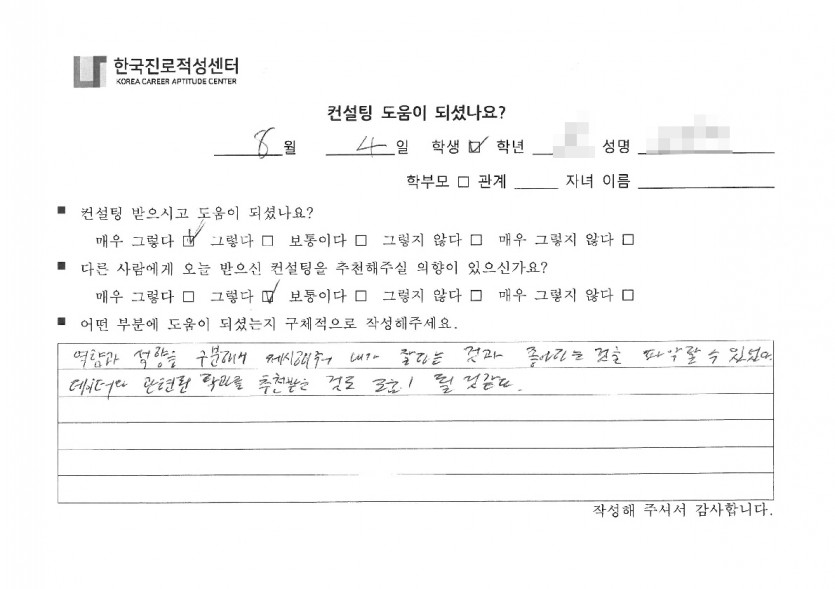 한국진로적성센터
KOREA CAREER APTITUDE CENTER
컨설팅 도움이 되셨나요?
8월 4일 학생 ☑ 학년 성명
학부모 □ 관계 자녀 이름
■ 컨설팅 받으시고 도움이 되셨나요?
매우 그렇다 ☑ 그렇다 □ 보통이다 □ 그렇지 않다 □ 매우 그렇지 않다 □
■ 다른 사람에게 오늘 받으신 컨설팅을 추천해주실 의향이 있으신가요?
매우 그렇다 □ 그렇다 ☑ 보통이다 □ 그렇지 않다 □ 매우 그렇지 않다 □
■ 어떤 부분에 도움이 되셨는지 구체적으로 작성해주세요.
역량과 적향을 구분해서 제시해줘서 내가 잘하는 것과 좋아하는 것을 파악할 수 있었다.
데이터와 관련된 학과를 추천받은 것도 도움이 될 것같다.
작성해 주셔서 감사합니다.